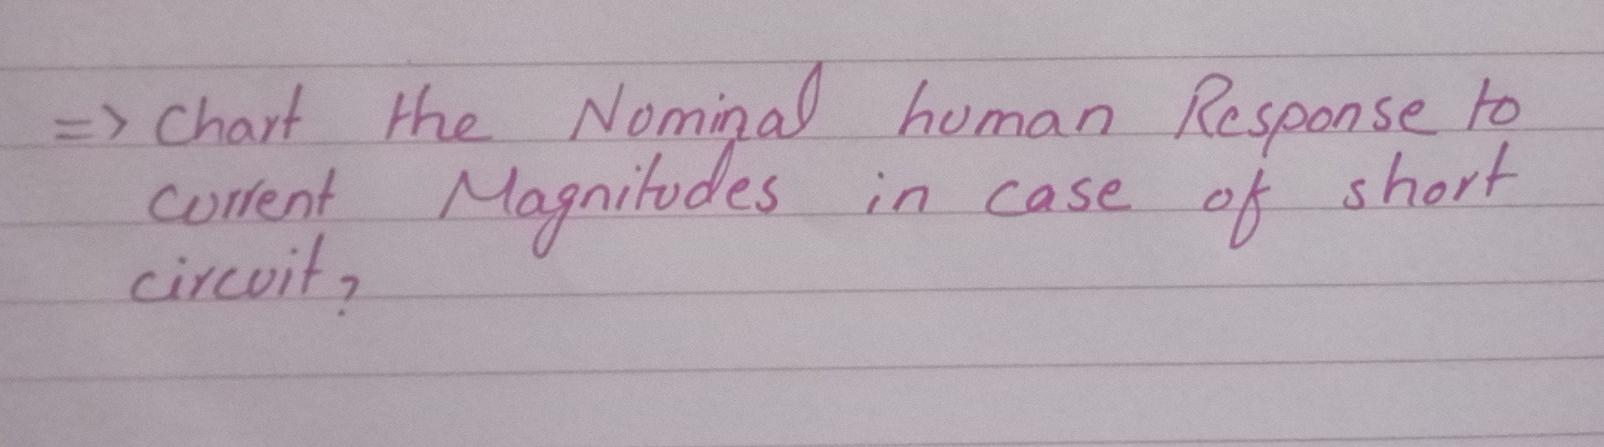 => Chart the Nominal human Response to
current Magnitudes in case of short
circuit?